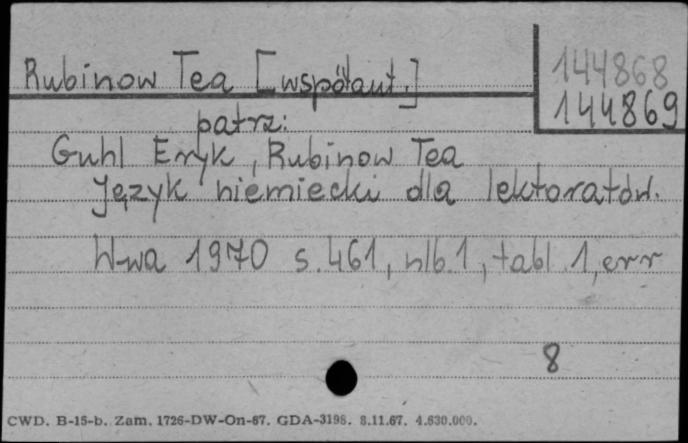 Rubinow Tea [współaut.]
144868
144869
patrz:
Guhl Eryk, Rubinow Tea
Język niemiecki dla lektoratów.
W-wa 1970 s.461, nlb.1, tabl 1, err
8
CWD. B-15-b. Zam. 1726-DW-On-67. GDA-3198. 8.11.67. 4.630.000.